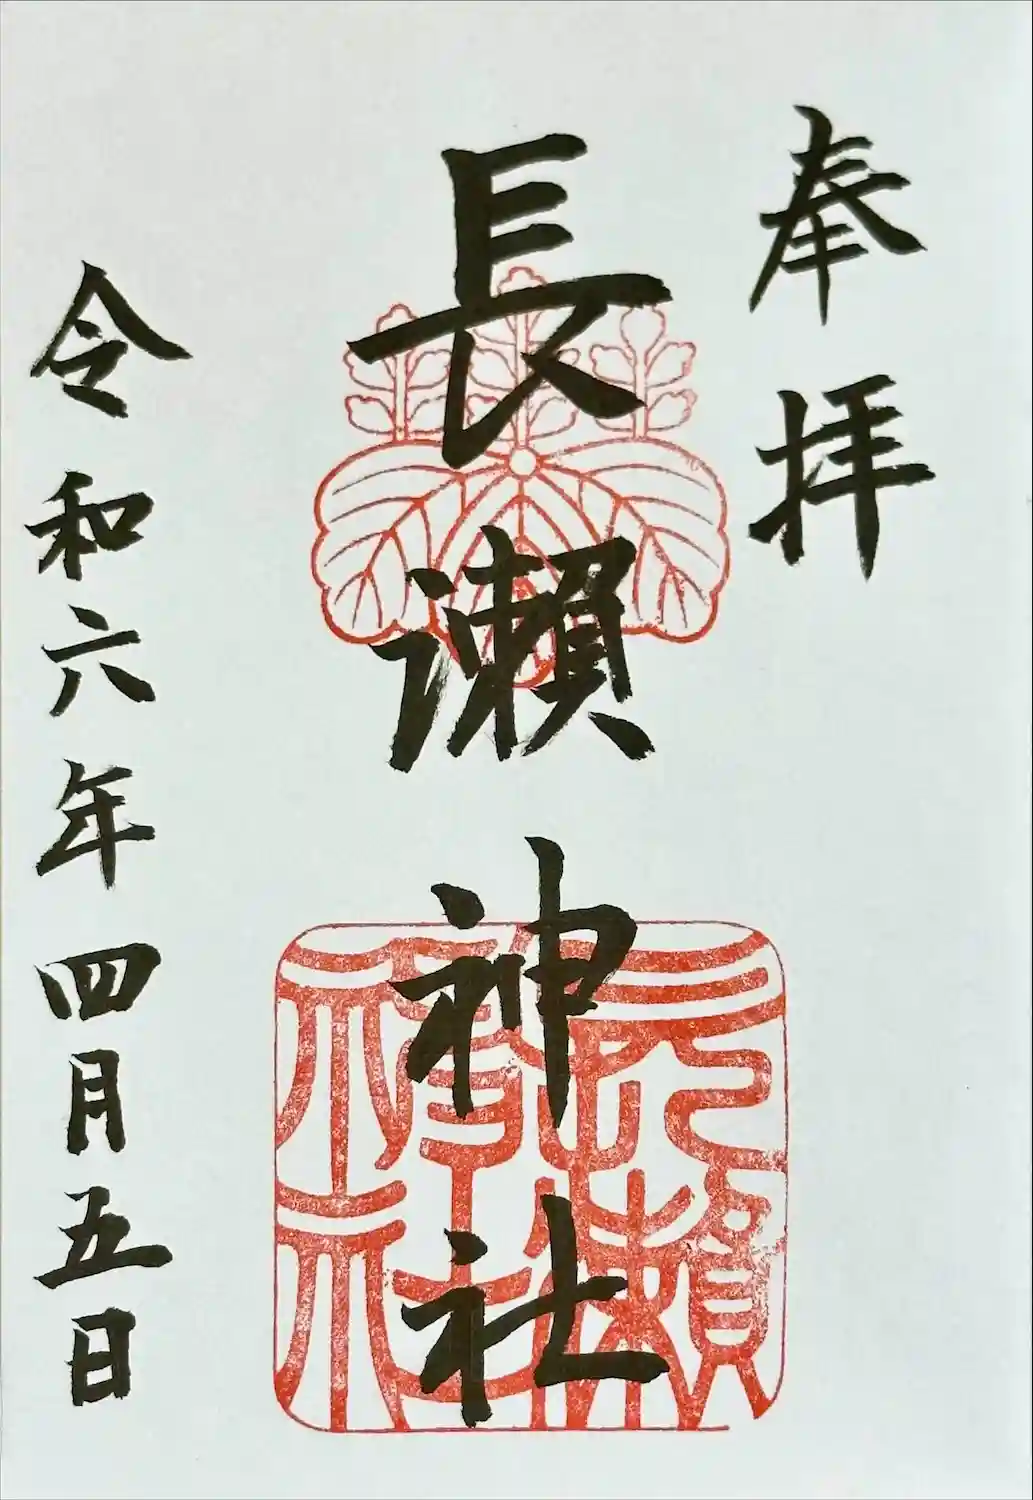 奉拝
長瀬神社
長瀬神社
令和六年四月五日